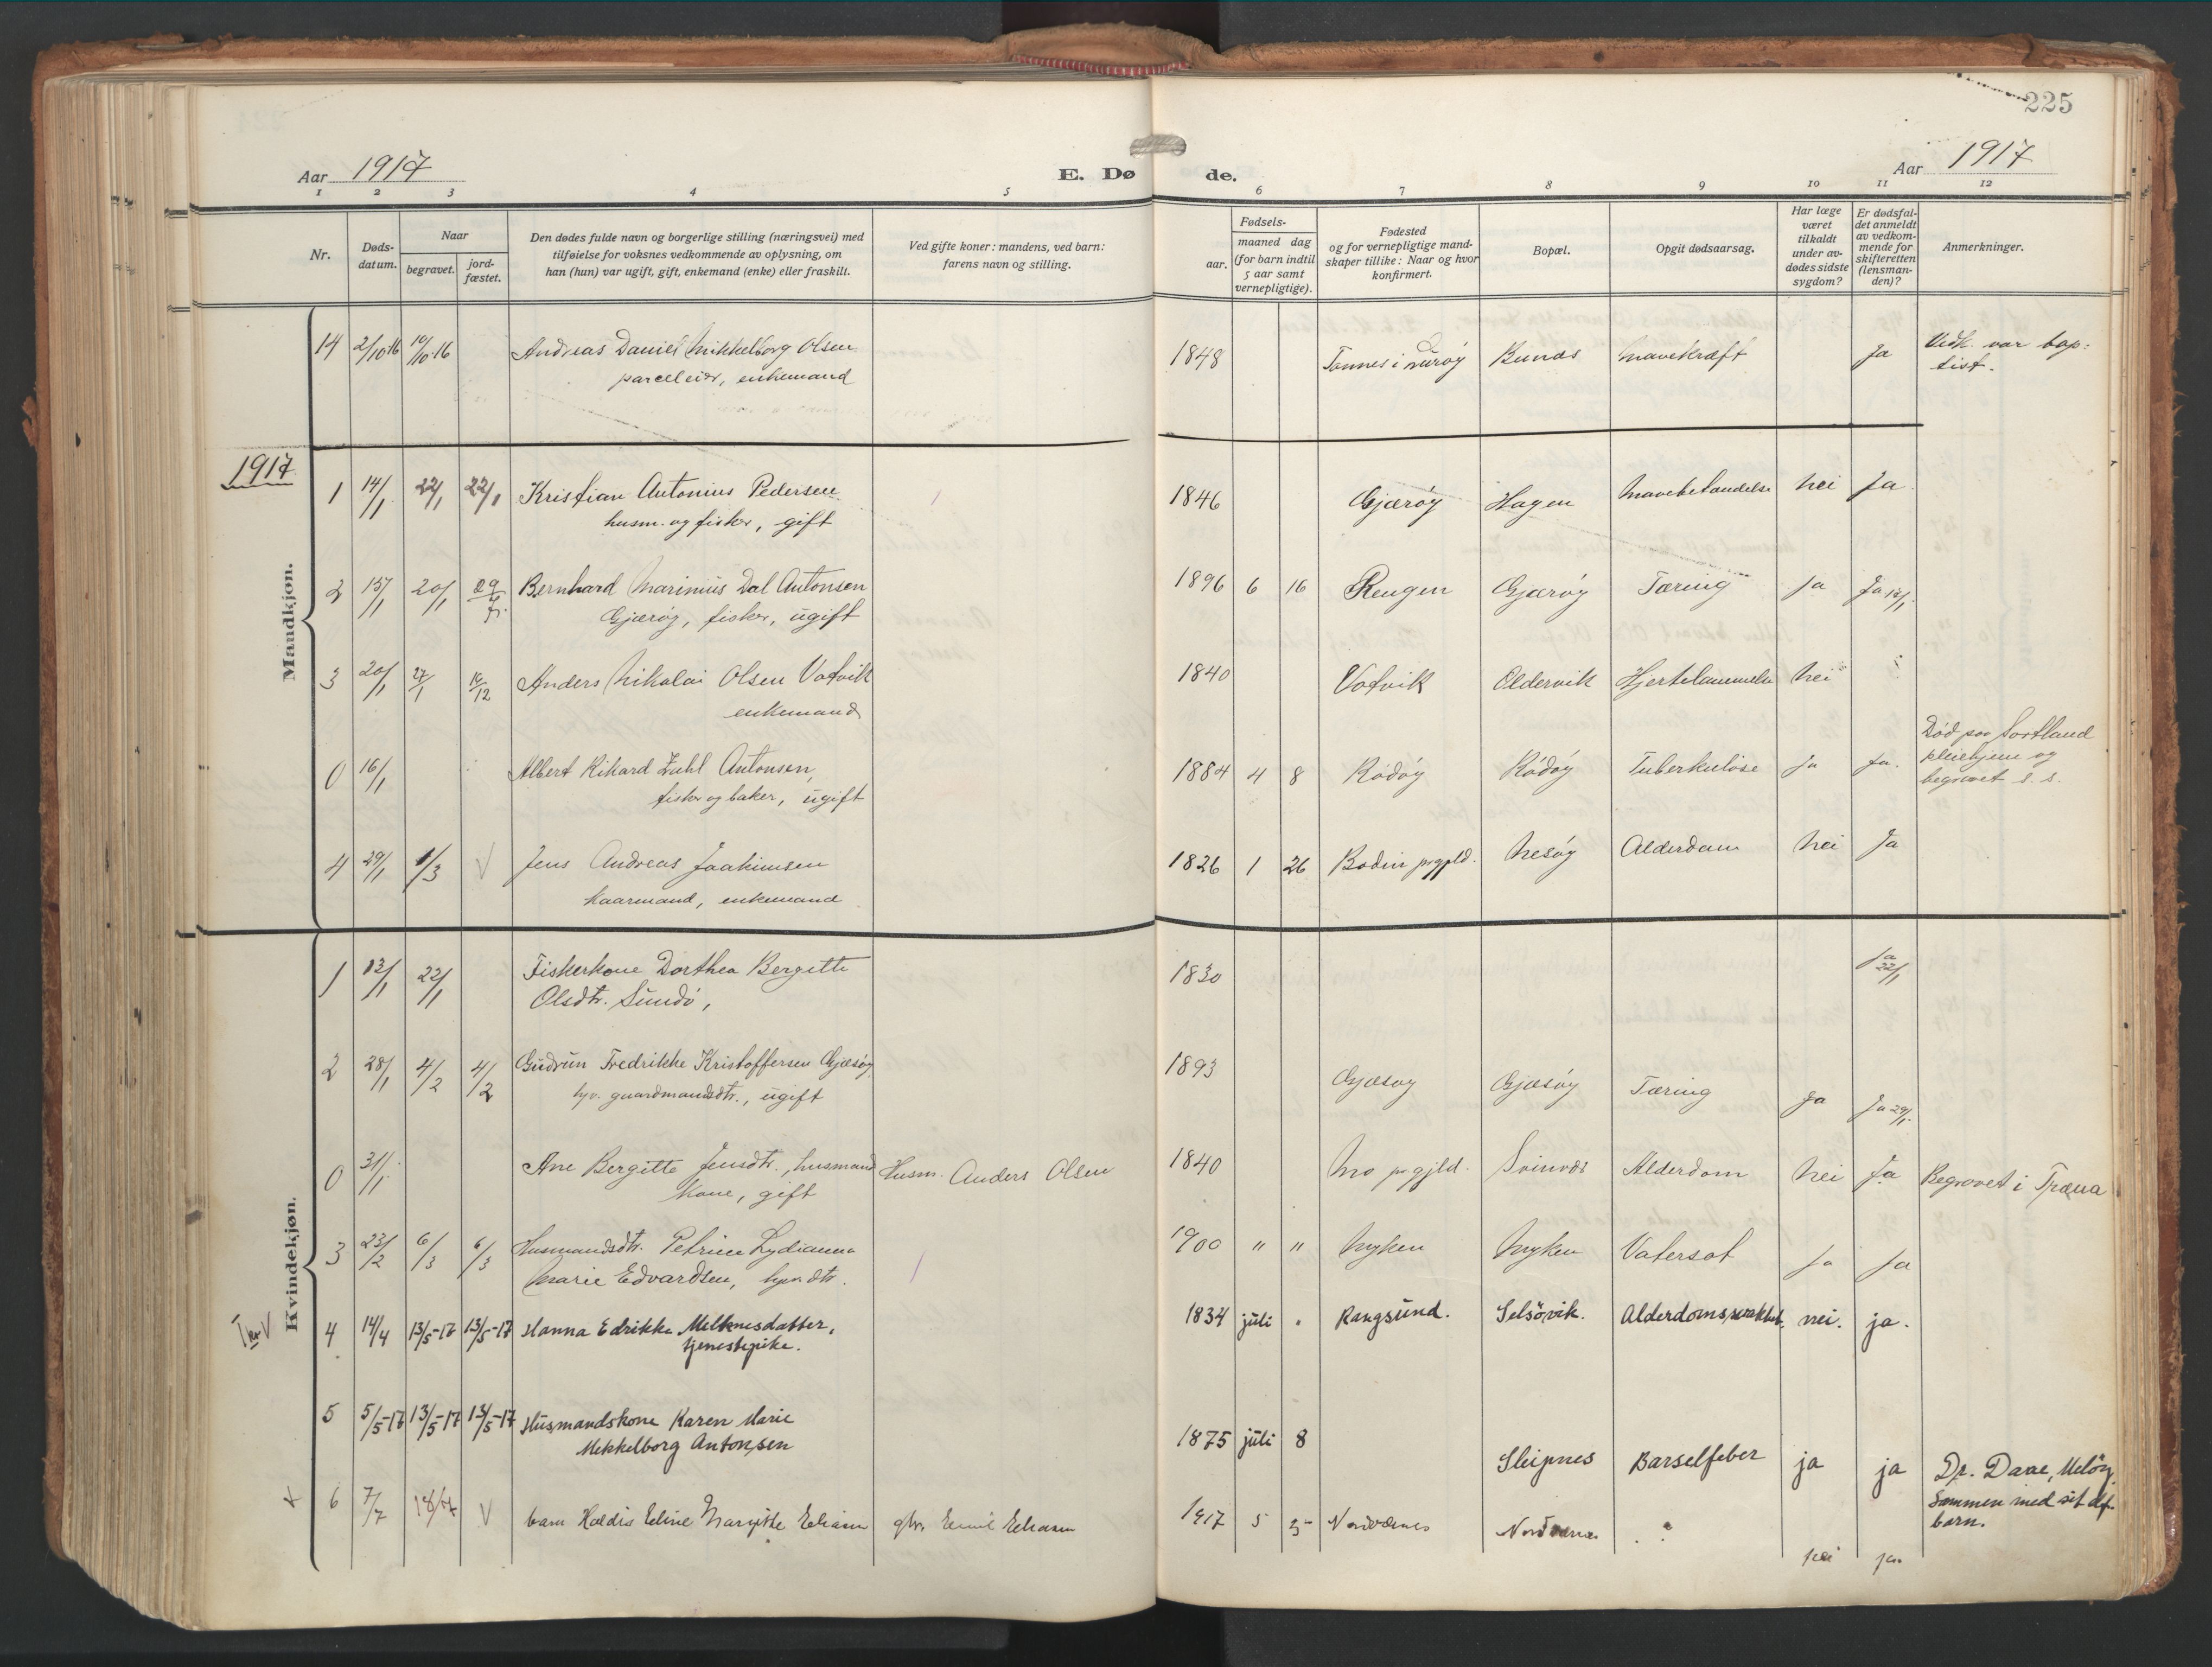 225
Aar 1917
E. Dø
de.
Aar 1917
1 2 3 4 5 6 7 8 9 10 11 12
Nr.
Døds-
datum.
Naar
begravet.
jord-
fæstet.
Den dødes fulde navn og borgerlige stilling (næringsvei) med
tilføielse for voksnes vedkommende av oplysning, om
han (hun) var ugift, gift, enkemand (enke) eller fraskilt.
Ved gifte koner: mandens, ved barn:
farens navn og stilling.
Fødsels-
aar.
maaned dag
(for barn indtil
5 aar samt
vernepligtige).
Fødested
og for vernepligtige mand-
skaper tillike: Naar og hvor
konfirmert.
Bopæl.
Opgit dødsaarsag.
Har læge
været
tilkaldt
under av-
dødes sidste
sygdom?
Er dødsfal-
det anmeldt
av vedkom-
mende for
skifteretten
(lensman-
den)?
Anmerkninger.
Mandkjøn.
14 2/10-16 10/10-16 Andreas Daniel Mikkelborg Olsen 1848 Tonnes i Lurøy Bunæs Mavekræft Ja Vedk. var bap-
parceleier, enkemand tist.
1917
1 14/1 22/1 22/1 Kristian Antonius Pedersen 1846 Gjærøy Hagen nei Ja
husm. og fisker, gift
2 15/1 20/1 29/7 Bernhard Marinius Dal Antonsen 1896 6 16 Rengen Gjærøy Tæring Ja Ja
Gjærøy, fisker, ugift
3 20/1 27/1 Anders Nikolai Olsen Vatvik 1840 Vatvik Oldervik Hjertelammelse Nei
enkemand
0 16/1 Albert Rikard Zahl Antonsen, 1884 4 8 Rödöy Rödöy Tuberkulose Ja Ja. Död paa Sortland
fisker og baker, ugift pleiehjem og
begravet s. s.
4 29/1 1/3 V Jens Andreas Joakimsen 1826 1 26 Bodin prgjld. Nesöy Alderdom Nei Ja
kaarmand, enkemand
Kvindekjøn.
1 13/1 22/1 Fiskerkone Dorthea Bergitte 1830 Ja 22/1
Olsdtr. Sundö,
2 28/1 4/2 4/2 Gudrun Fredrikke Kristoffersen Gjæsöy 1893 Gjæsøy Gjæsöy Tæring Ja Ja 29/1
hjv. gaardmandsdtr., ugift
0 31/1 Ane Bergitte Jensdtr., husmand Husm. Anders Olsen 1840 Mo prgjld. Svinvær Alderdom Nei Ja Begravet i Træna
kone, gift
3 23/2 6/3 6/3 Husmandsdtr. Petrine Lydianna 1900 " " Myken Myken Vatersot Ja Ja
Marie Edvardsen, hjv. dtr.
4 14/4 13/5-17 13/5-17 Hanna Edrikke Melknesdatter, 1834 juli " Rangsund. Selsövik. Alderdomssvakhet. nei. ja.
tjenestepike.
5 5/5-17 13/5-17 13/5-17 Husmandskone Karen Marie 1875 juli 8 Sleipnes Barselfeber ja ja Dr. Daae, Melöy.
Mekkelborg Antonsen Sammen med sit df.
barn.
x 6 7/7 18/7 V barn Haldis Eline Margitte Eliasen Emil Eliasen 1917 5 5 Nordværnes Nordværnes
nei ja